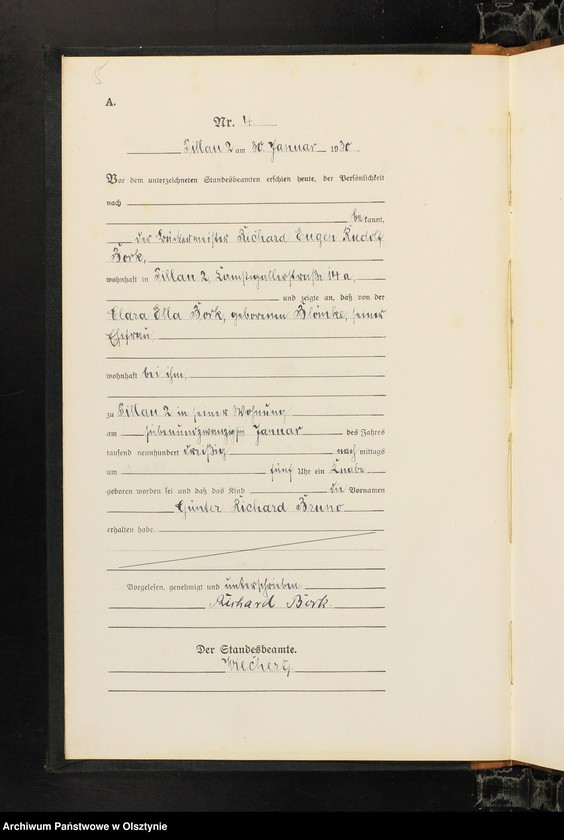 8
A.
Nr. 4
Pillau 2 am 30. Januar 1930
Vor dem unterzeichneten Standesbeamten erschien heute, der Persönlichkeit
nach
be kannt,
der Bäckermeister Richard Eugen Rudolf
Bork,
wohnhaft in Pillau 2, Camstigallerstraße 14 a,
und zeigte an, daß von der
Clara Ella Bork, geborenen Blömke, seiner
Ehefrau,
wohnhaft bei ihm,
zu Pillau 2 in seiner Wohnung
am siebenundzwanzigsten Januar des Jahres
tausend neunhundert dreißig nach mittags
um fünf Uhr ein Knabe
geboren worden sei und daß das Kind die Vornamen
Günter Richard Bruno
erhalten habe.
Vorgelesen, genehmigt und unterschrieben
Richard Bork.
Der Standesbeamte.
Archiwum Państwowe w Olsztynie